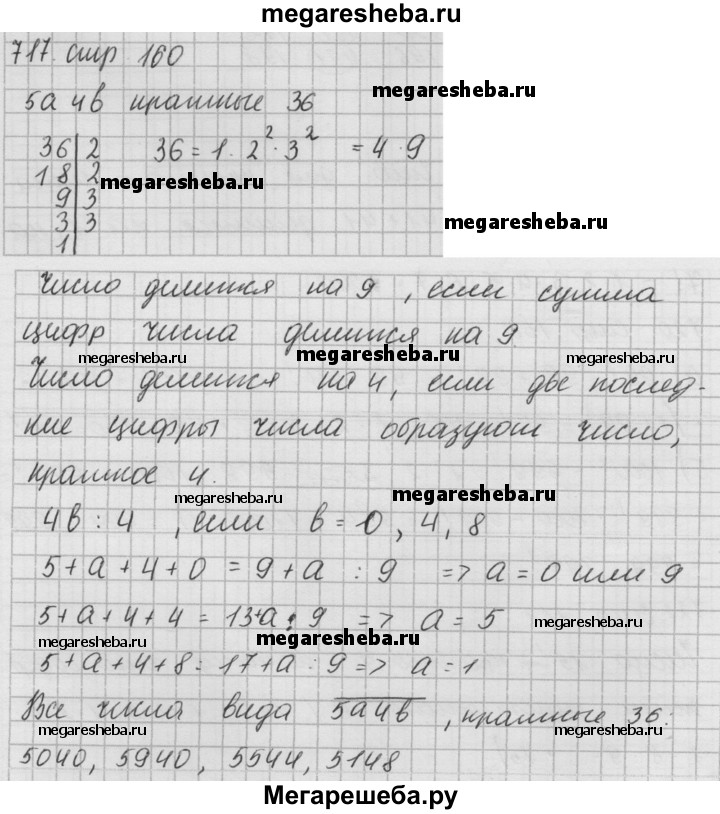 megaresheba.ru
717. стр 160
5а4в кратные 36
megaresheba.ru
36|2 36 = 1 · 2² · 3² = 4 · 9
18|2
megaresheba.ru
9|3
3|3
megaresheba.ru
1|
Число делится на 9, если сумма
цифр числа делится на 9.
megaresheba.ru megaresheba.ru megaresheba.ru
Число делится на 4, если две послед-
ние цифры числа образуют число,
кратное 4.
megaresheba.ru megaresheba.ru
4в : 4, если в = 0, 4, 8
5 + а + 4 + 0 = 9 + а : 9 => а = 0 или 9
5 + а + 4 + 4 = 13 + а : 9 => а = 5
megaresheba.ru
megaresheba.ru megaresheba.ru
5 + а + 4 + 8 = 17 + а : 9 => а = 1
Все числа вида 5а4в, кратные 36:
megaresheba.ru megaresheba.ru
5040, 5940, 5544, 5148
Мегарешеба.ру